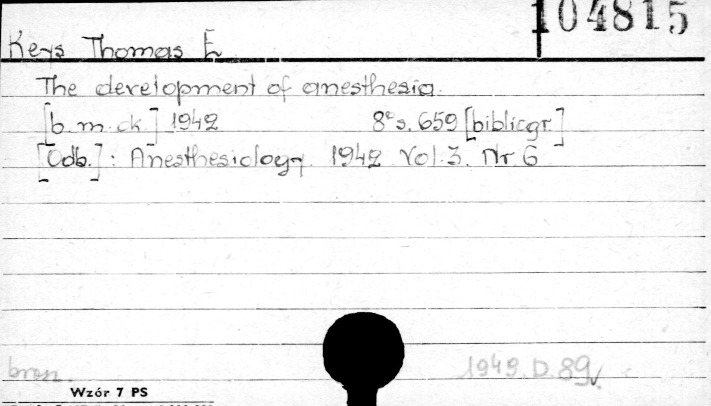 104815
Keys Thomas E.
The development of anesthesia.
[b. m. dk.] 1942 8°s. 659 [bibliogr.]
[Odb.] : Anesthesiology. 1942 Vol. 3. Nr 6
brosz.
1949. D. 89
Wzór 7 PS